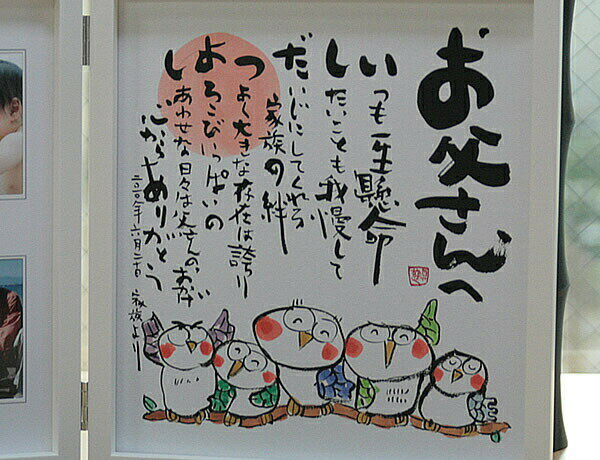 お父さんへ
いつも一生懸命
したいことも我慢して
だいじにしてくれる
家族の絆
つよく大きな存在は誇り
よろこびいっぱいの
しあわせな日々は父さんの、おかげ
心からありがとう
家族より